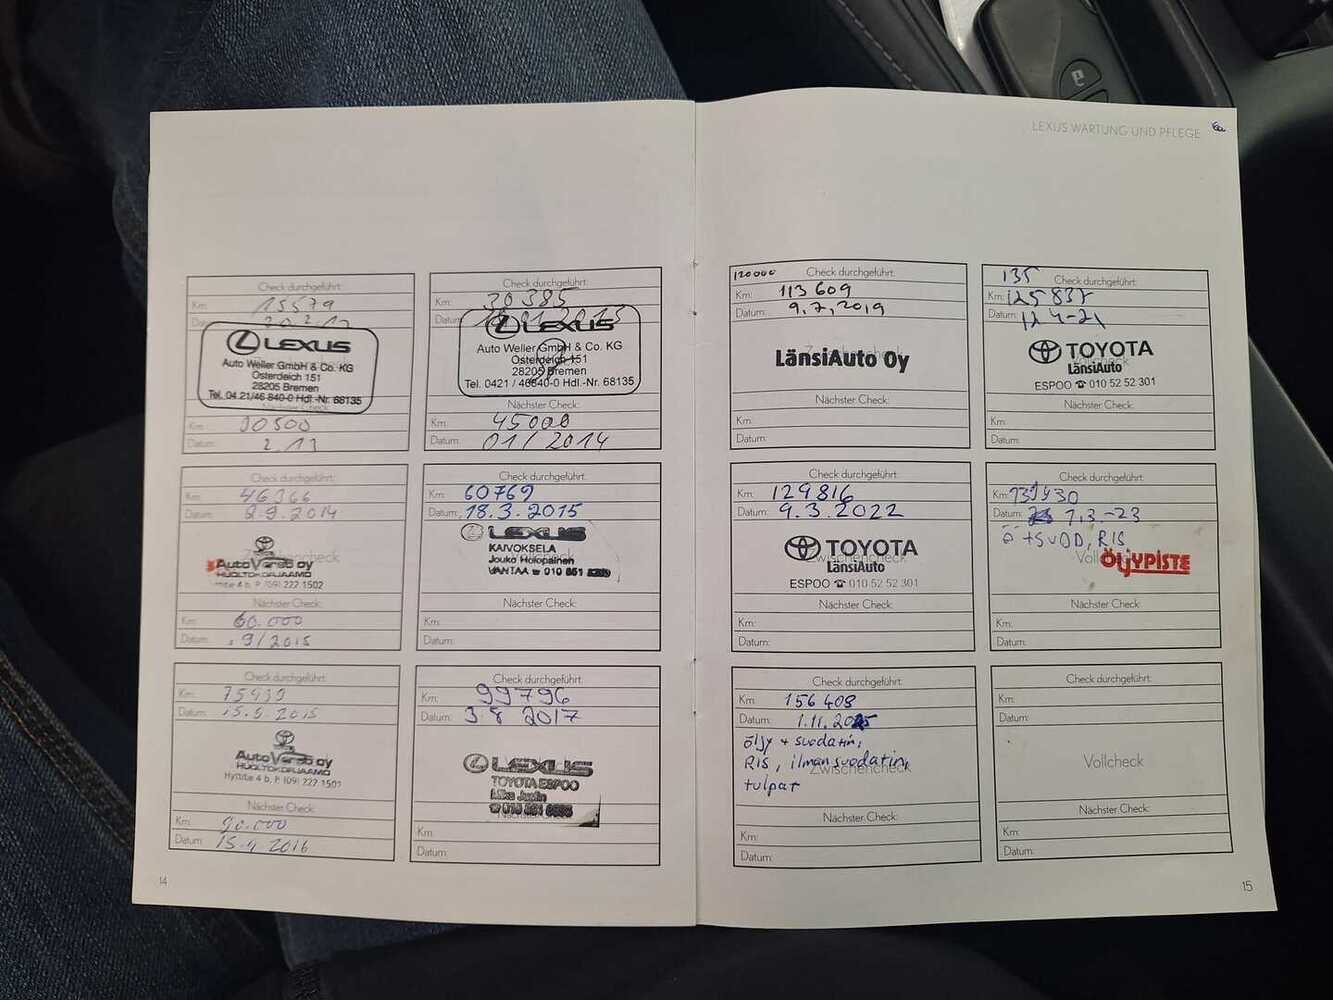 LEXUS WARTUNG UND PFLEGE
Check durchgeführt:
Km: 15579
LEXUS
Auto Weller GmbH & Co. KG
Osterdeich 151
28205 Bremen
Tel. 04 21/46 840-0 Hdl.-Nr. 68135
Km: 30500
Datum: 2.13
Check durchgeführt:
Km: 30385
Datum:
LEXUS
Auto Weller GmbH & Co. KG
Osterdeich 151
28205 Bremen
Tel. 0421 / 46840-0 Hdl-Nr. 68135
Nächster Check:
Km: 45000
Datum: 01/2014
Check durchgeführt:
Km: 46366
Datum: 2.9.2014
Zwischencheck
AutoVerso oy
HUOLTOKORJAAMO
Hyttitie 4 b, P. (09) 222 1502
Nächster Check:
Km: 60.000
Datum: 9/2015
Check durchgeführt:
Km: 60769
Datum: 18.3.2015
LEXUS
KAIVOKSELA
Jouko Holopainen
VANTAA ☎ 010 851
Nächster Check:
Km:
Datum:
Check durchgeführt:
Km: 75939
Datum: 15.5.2015
AutoVerso oy
HUOLTOKORJAAMO
Hyttitie 4 b, P. (09) 222 1502
Nächster Check:
Km: 90.000
Datum: 15.4 2016
Check durchgeführt:
Km: 99796
Datum: 3.8 2017
LEXUS
TOYOTA ESPOO
Nächster Check:
Km:
Datum:
14
120000 Check durchgeführt:
Km: 113609
Datum: 9.7.2019
Zwischencheck
LänsiAuto Oy
Nächster Check:
Km:
Datum:
135
Check durchgeführt:
Km: 125837
Datum: 12.4-21
TOYOTA
Vollcheck
LänsiAuto
ESPOO ☎ 010 52 52 301
Nächster Check:
Km:
Datum:
Check durchgeführt:
Km: 129816
Datum: 9.3.2022
TOYOTA
Zwischencheck
LänsiAuto
ESPOO ☎ 010 52 52 301
Nächster Check:
Km:
Datum:
Check durchgeführt:
Km: 139430
Datum: 7.3.-23
Ö +SUOD, RIS
Vollcheck
ÖLJYPISTE
Nächster Check:
Km:
Datum:
Check durchgeführt:
Km: 156408
Datum: 1.11.2025
öljy + suodatin,
RIS, ilmansuodatin,
Zwischencheck
tulpat
Nächster Check:
Km:
Datum:
Check durchgeführt:
Km:
Datum:
Vollcheck
Nächster Check:
Km:
Datum:
15